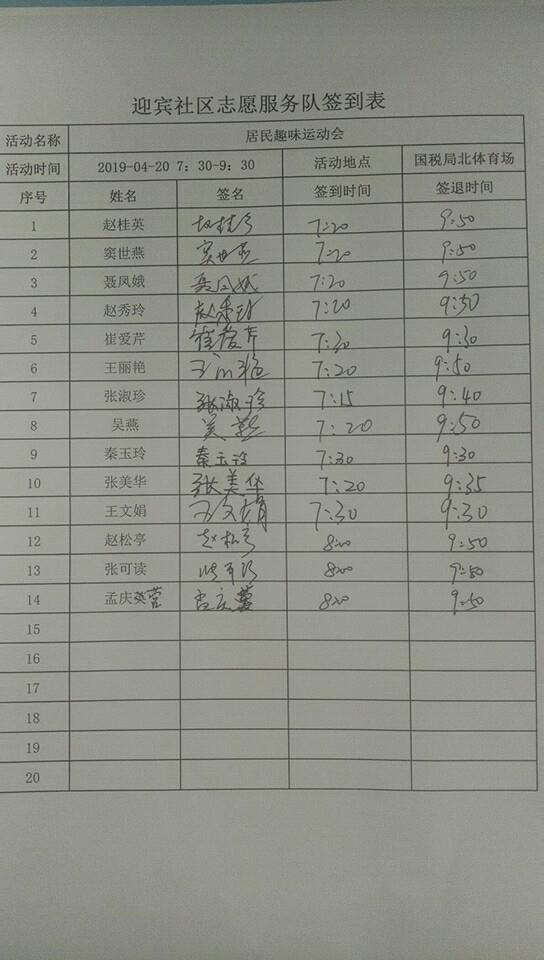 迎宾社区志愿服务队签到表
活动名称 居民趣味运动会
活动时间 2019-04-20 7：30-9：30 活动地点 国税局北体育场
序号 姓名 签名 签到时间 签退时间
1 赵桂英 赵桂英 7:20 9:50
2 窦世燕 窦世燕 7:20 9:50
3 聂凤娥 聂凤娥 7:20 9:50
4 赵秀玲 赵秀玲 7:20 9:50
5 崔爱芹 崔爱芹 7:30 9:30
6 王丽艳 王丽艳 7:20 9:50
7 张淑珍 张淑珍 7:15 9:40
8 吴燕 吴燕 7:20 9:50
9 秦玉玲 秦玉玲 7:30 9:30
10 张美华 张美华 7:20 9:35
11 王文娟 王文娟 7:30 9:30
12 赵松亭 赵松亭 8:00 9:50
13 张可读 8:00 9:50
14 孟庆营 孟庆营 8:00 9:50
15
16
17
18
19
20